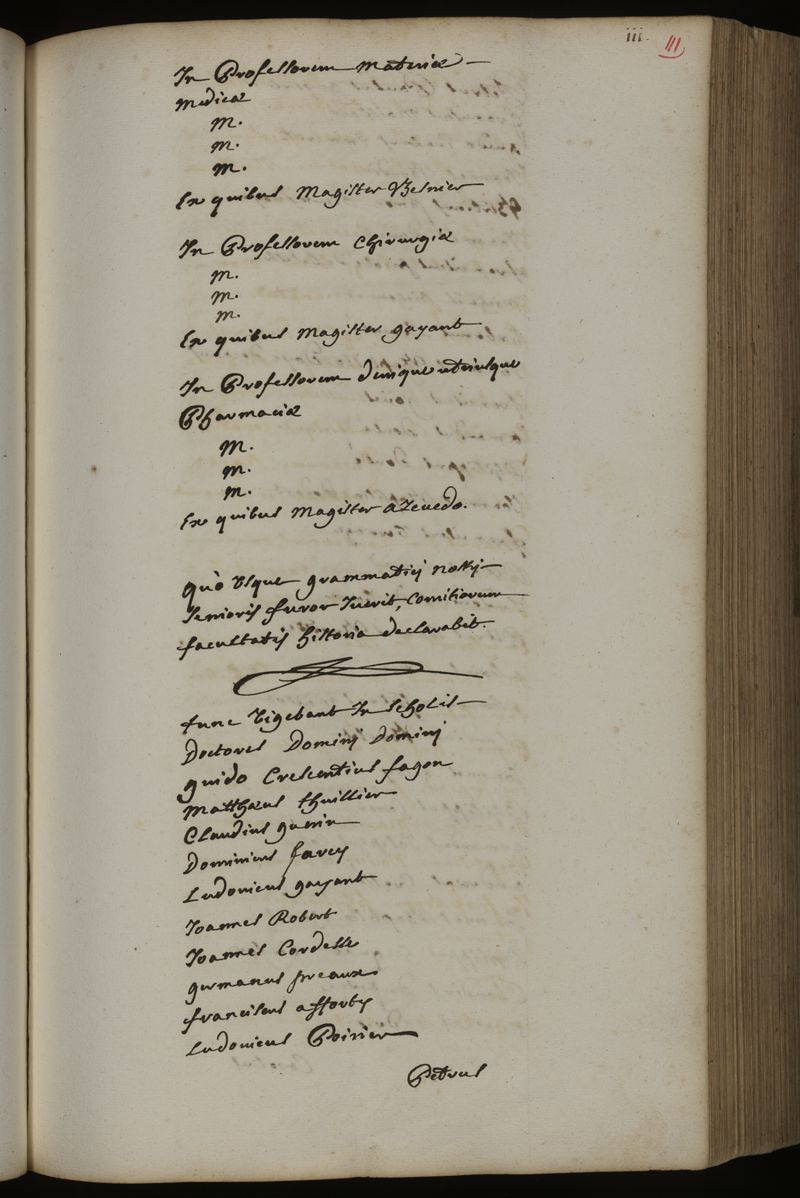 iii.
111
In Professorem materiæ
medicæ
m.
m.
m.
Ex quibus magister Besnier
In Professorem chirurgiæ
m.
m.
m.
Ex quibus magister gayant
In Professorem denique utriusque
Pharmaciæ
m.
m.
m.
Ex quibus magister azevedo.
quò usque grammatici nostri
senioris furor Iverit, comitiorum
facultatis historia declarabit.
tunc vigebant In scholis
Doctores Dominj Dominj
guido Crescentius fagon
matthæus thuillier
Claudius guerin
Dominicus farcy
Ludovicus gayant
Joannes Robert
Joannes Cordelle
germanus preaux
franciscus afforty
Ludovicus Poirier
Petrus